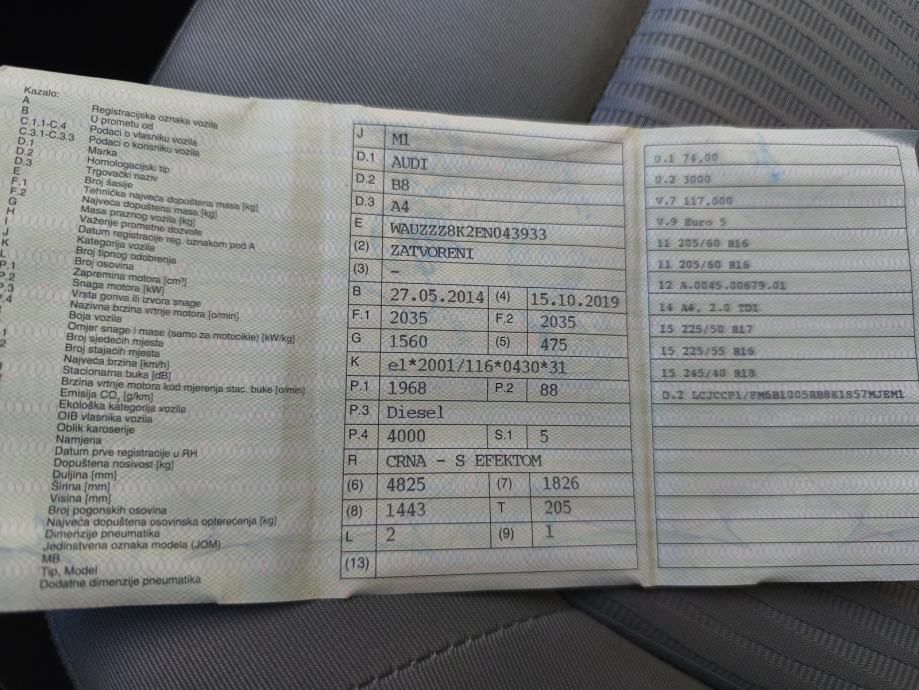 Kazalo:
A Registracijska oznaka vozila
B U prometu od
C.1.1-C.4 Podaci o vlasniku vozila
C.3.1-C.3.3 Podaci o korisniku vozila
D.1 Marka
D.2 Homologacijski tip
D.3 Trgovački naziv
E Broj šasije
F.1 Tehnička najveća dopuštena masa [kg]
F.2 Najveća dopuštena masa [kg]
G Masa praznog vozila [kg]
H Važenje prometne dozvole
I Datum registracije reg. oznakom pod A
J Kategorija vozila
K Broj tipnog odobrenja
L Broj osovina
P.1 Zapremina motora [cm³]
P.2 Snaga motora [kW]
P.3 Vrsta goriva ili izvora snage
P.4 Nazivna brzina vrtnje motora [o/min]
Boja vozila
Omjer snage i mase (samo za motocikle) [kW/kg]
Broj sjedećih mjesta
Broj stajaćih mjesta
Najveća brzina [km/h]
Stacionarna buka [dB]
Brzina vrtnje motora kod mjerenja stac. buke [o/min]
Emisija CO₂ [g/km]
Ekološka kategorija vozila
OIB vlasnika vozila
Oblik karoserije
Namjena
Datum prve registracije u RH
Dopuštena nosivost [kg]
Duljina [mm]
Širina [mm]
Visina [mm]
Broj pogonskih osovina
Najveća dopuštena osovinska opterećenja [kg]
Dimenzije pneumatika
Jedinstvena oznaka modela (JOM)
MB
Tip, Model
Dodatne dimenzije pneumatika
J M1
D.1 AUDI
D.2 B8
D.3 A4
E WAUZZZ8K2EN043933
(2) ZATVORENI
(3) –
B 27.05.2014 (4) 15.10.2019
F.1 2035 F.2 2035
G 1560 (5) 475
K e1*2001/116*0430*31
P.1 1968 P.2 88
P.3 Diesel
P.4 4000 S.1 5
R CRNA - S EFEKTOM
(6) 4825 (7) 1826
(8) 1443 T 205
L 2 (9) 1
(13)
U.1 74,00
U.2 3000
V.7 117,000
V.9 Euro 5
11 205/60 R16
11 205/60 R16
12 A.0045.00679.01
14 A4, 2.0 TDI
15 225/50 R17
15 225/55 R16
15 245/40 R18